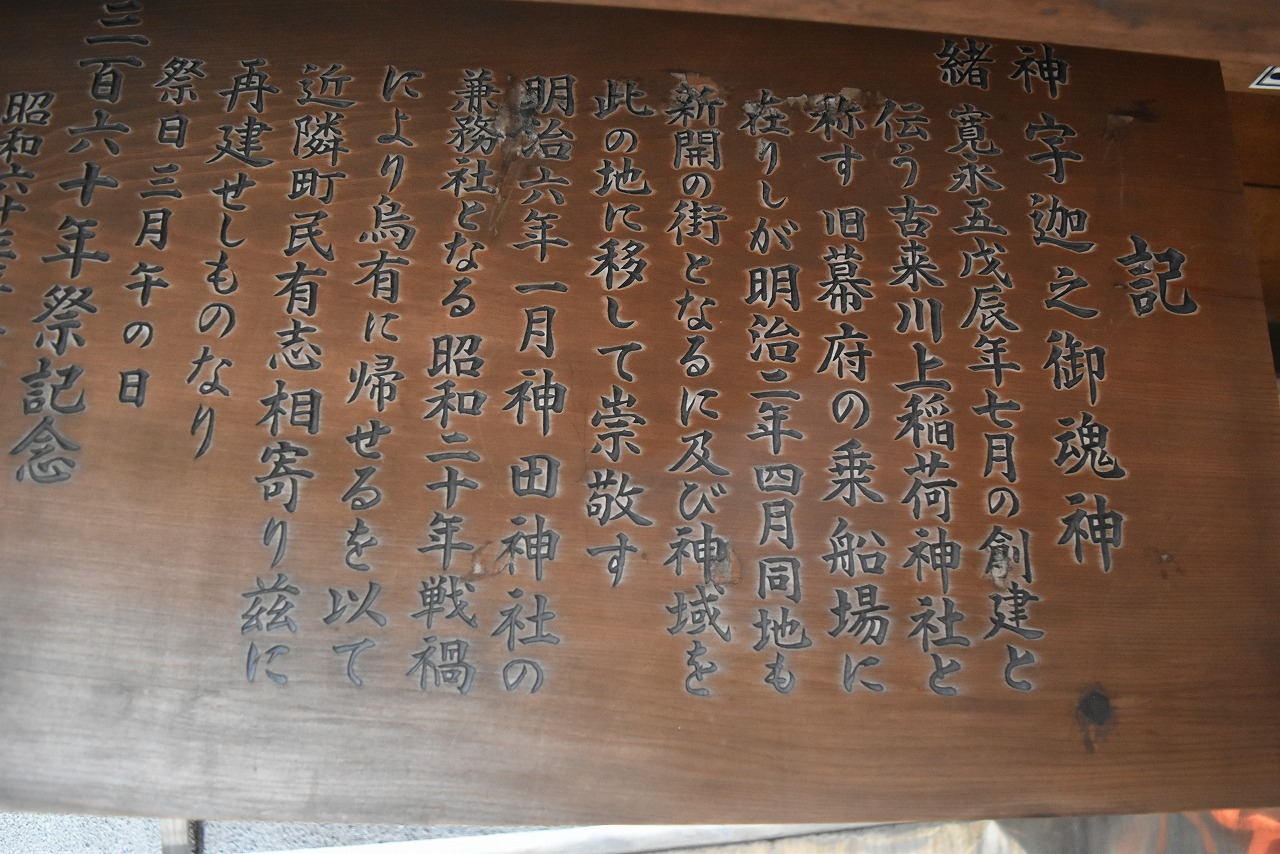 記
神 字迦之御魂神
緒 寛永五戊辰年七月の創建と
伝う古来川上稲荷神社と
称す 旧幕府の乗船場に
在りしが明治二年四月同地も
新開の街となるに及び神域を
此の地に移して崇敬す
明治六年一月神田神社の
兼務社となる昭和二十年戦禍
により烏有に帰せるを以て
近隣町民有志相寄り茲に
再建せしものなり
祭日三月午の日
三百六十年祭記念
昭和六十三年